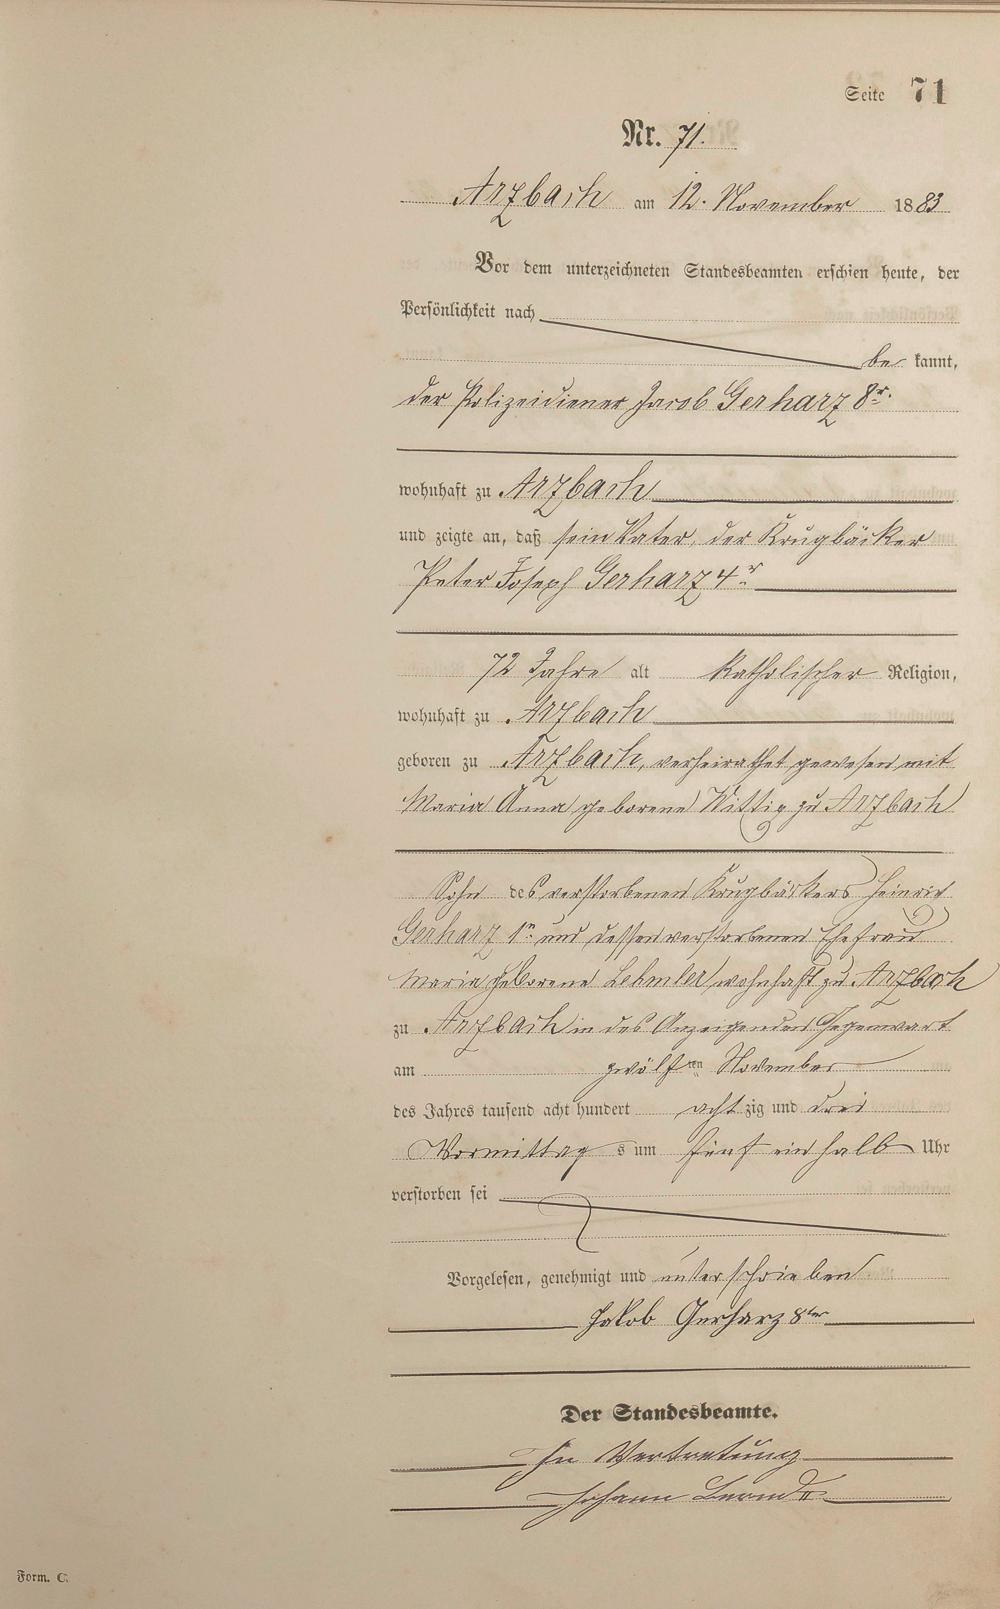 Seite 71
Nr. 71.
Arzbach am 12. November 1883
Vor dem unterzeichneten Standesbeamten erschien heute, der
Persönlichkeit nach
be kannt,
der Polizeidiener Jacob Gerharz 8r.
wohnhaft zu Arzbach
und zeigte an, daß sein Vater, der Krugbäcker
Peter Joseph Gerharz 4r
72 Jahre alt Katholischer Religion,
wohnhaft zu Arzbach
geboren zu Arzbach, verheirathet gewesen mit
Maria Anna geborene Wittig zu Arzbach
Sohn des verstorbenen Krugbäckers Heinrich
Gerharz 1r und dessen verstorbenen Ehefrau
Maria geborene Lehmler wohnhaft zu Arzbach
zu Arzbach in des Anzeigenden Gegenwart
am zwölften November
des Jahres tausend acht hundert acht zig und drei
Vormittag s um fünf ein halb Uhr
verstorben sei
Vorgelesen, genehmigt und unterschrieben
Jakob Gerharz 8ter
Der Standesbeamte.
In Vertretung
Johann
Form. C.